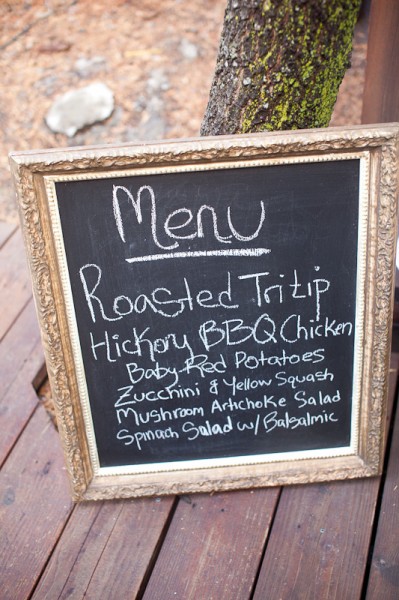 Menu
Roasted Tritip
Hickory BBQ Chicken
Baby Red Potatoes
Zucchini & Yellow Squash
Mushroom Artichoke Salad
Spinach Salad w/ Balsalmic